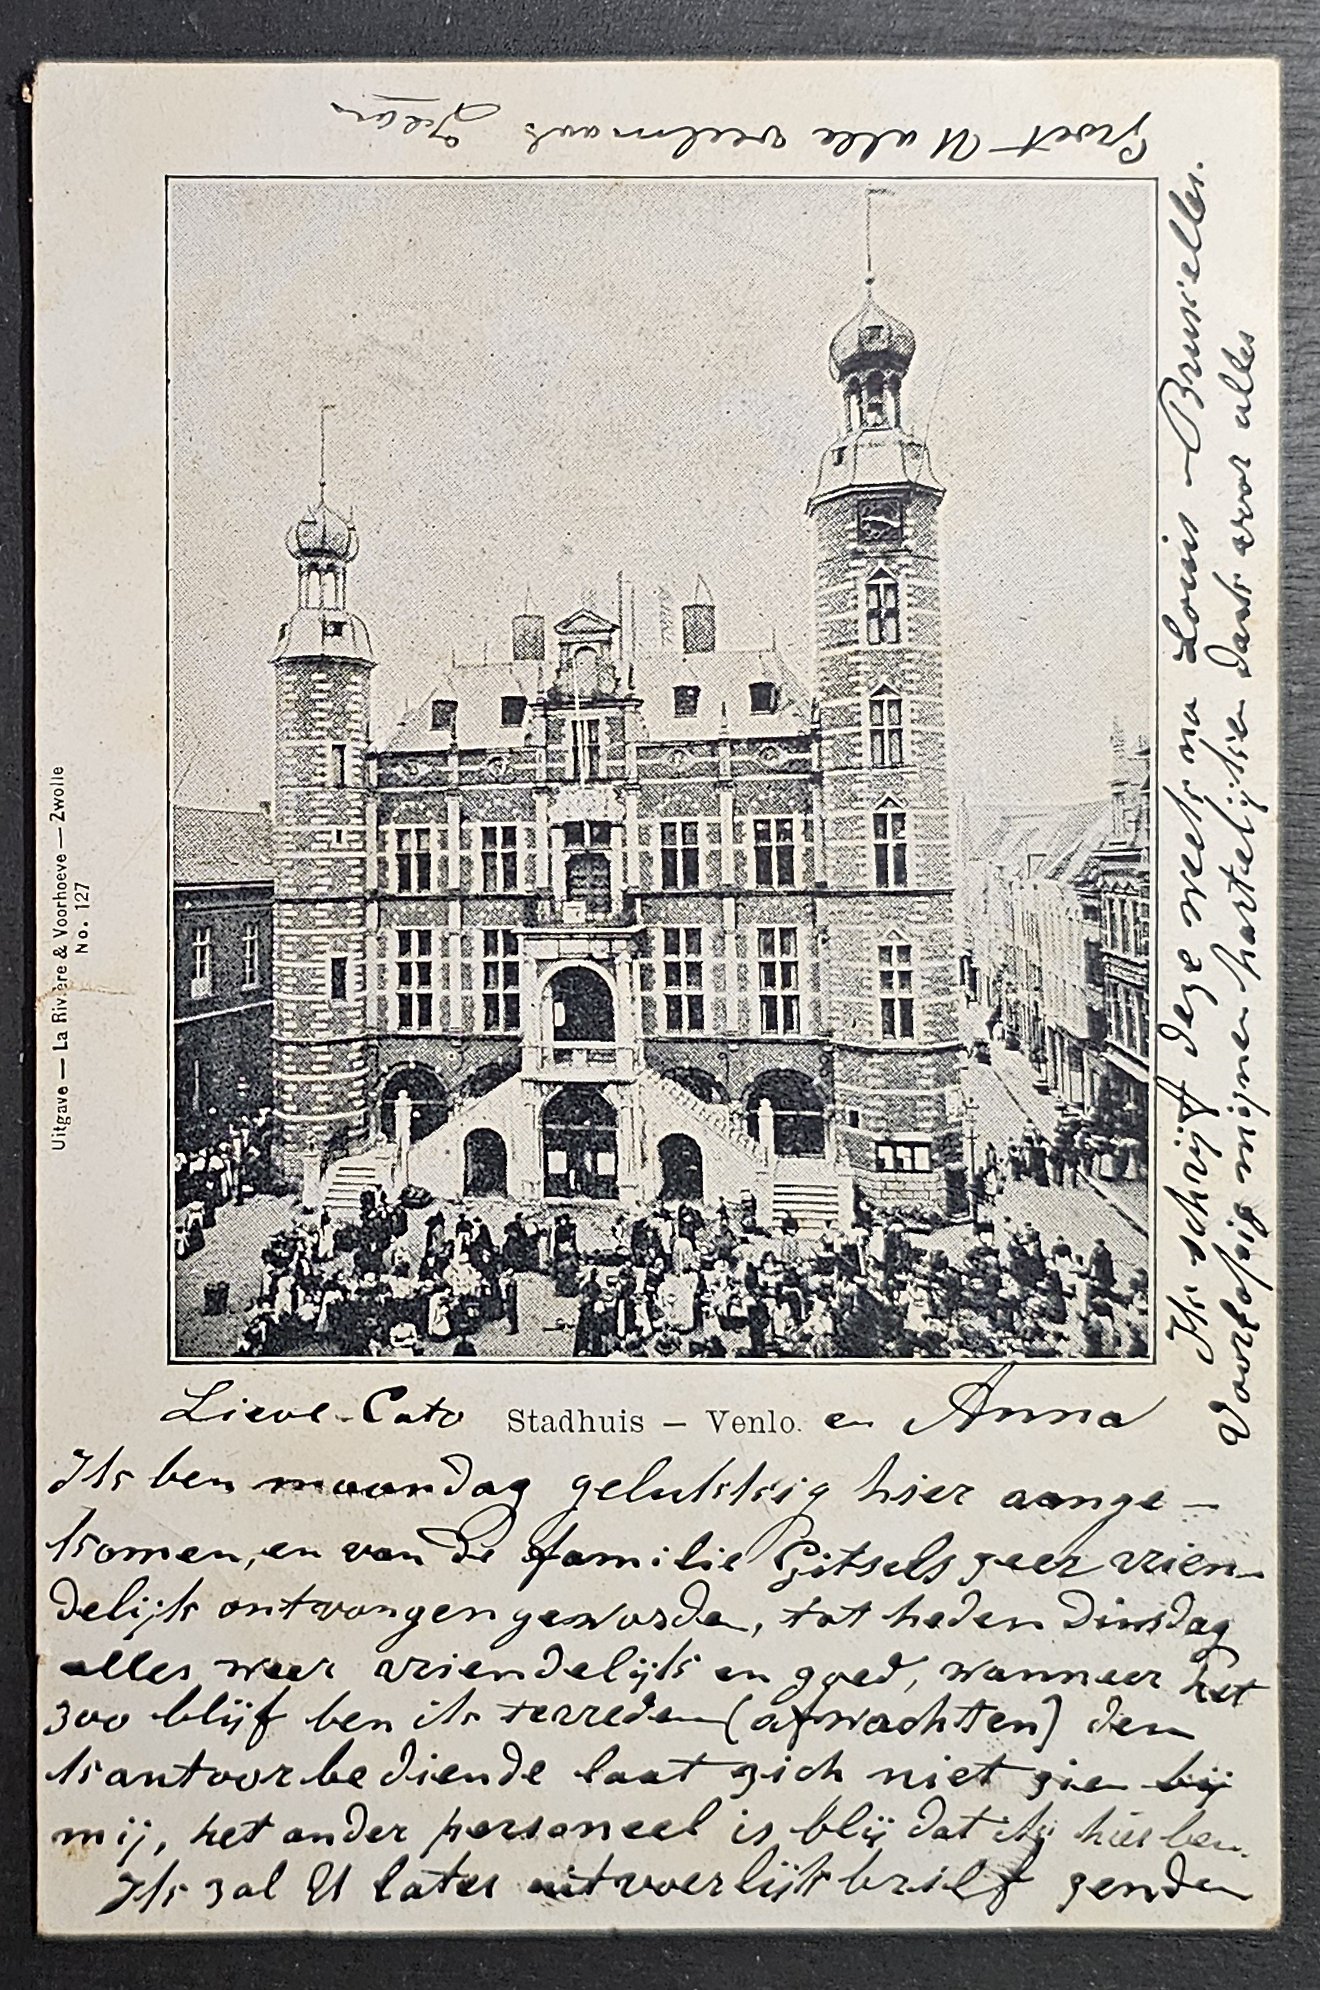 Lieve Cato Stadhuis – Venlo. en Anna
Ik ben maandag gelukkig hier aange-
komen, en van de familie Gitsels zeer vrien-
delijk ontvangen geworden, tot heden Dinsdag
alles weer vriendelijk en goed, wanneer het
zoo blijf ben ik terreden (afwachten) den
kantoorbediende laat zich niet zien bij
mij, het ander personeel is blij dat ik hier ben.
Ik zal U later uitvoerlijk brief zenden
Ik schrijf deze week na Louis - Bruxelles.
Voorlopig mijnen hartelijken dank voor alles
Groet U alle veelmaals
Uitgave — La Rivière & Voorhoeve — Zwolle
No. 127